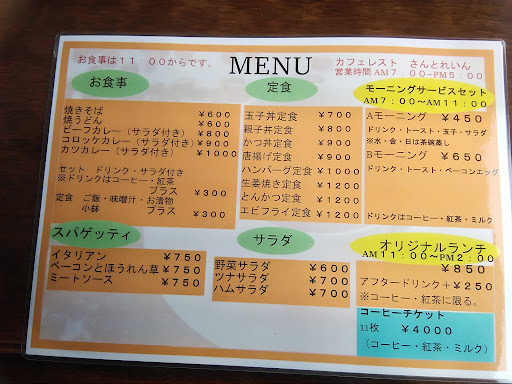 お食事は１１：００からです。
MENU
カフェレスト　さんとれいん
営業時間 AM７：００−PM５：００
お食事
焼きそば　￥６００
焼うどん　￥６００
ビーフカレー（サラダ付き）￥８００
コロッケカレー（サラダ付き）￥９００
カツカレー（サラダ付き）￥１０００
セット　ドリンク・サラダ付き
※ドリンクはコーヒー・紅茶
プラス　￥３００
定食　ご飯・味噌汁・お漬物
小鉢　プラス　￥３００
定食
玉子丼定食　￥７００
親子丼定食　￥８００
かつ丼定食　￥９００
唐揚げ定食　￥９００
ハンバーグ定食　￥１０００
生姜焼き定食　￥１２００
とんかつ定食　￥１２００
エビフライ定食　￥１２００
モーニングサービスセット
AM７：００〜AM１１：００
Aモーニング　￥４５０
ドリンク・トースト・玉子・サラダ
※水・金・日は茶碗蒸し
Bモーニング　￥６５０
ドリンク・トースト・ベーコンエッグ
ドリンクはコーヒー・紅茶・ミルク
スパゲッティ
イタリアン　￥７５０
ベーコンとほうれん草　￥７５０
ミートソース　￥７５０
サラダ
野菜サラダ　￥６００
ツナサラダ　￥７００
ハムサラダ　￥７００
オリジナルランチ
AM１１：００〜PM２：００
￥８５０
アフタードリンク＋￥２５０
※コーヒー・紅茶に限る。
コーヒーチケット
11枚　￥４０００
（コーヒー・紅茶・ミルク）